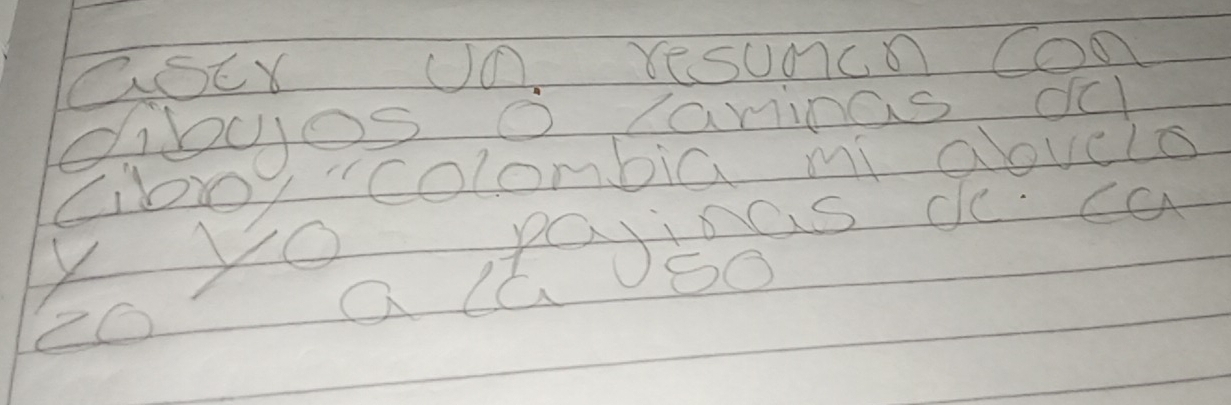 aser un resumen con
dibujos o laminas del
libro, "colombia mi abuelo
y yo pajinas de la
20 a la 50